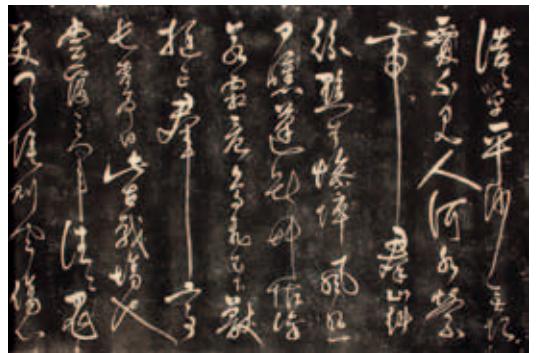 浩浩乎平沙無垠
敻不見人河水縈
帶群山糾
紛黯兮慘悴風悲
日曛蓬斷草枯凜
若霜晨鳥飛不下獸
挺亡群亭
長告余曰此古戰場也
嘗覆三軍往往鬼
哭天陰則聞傷心